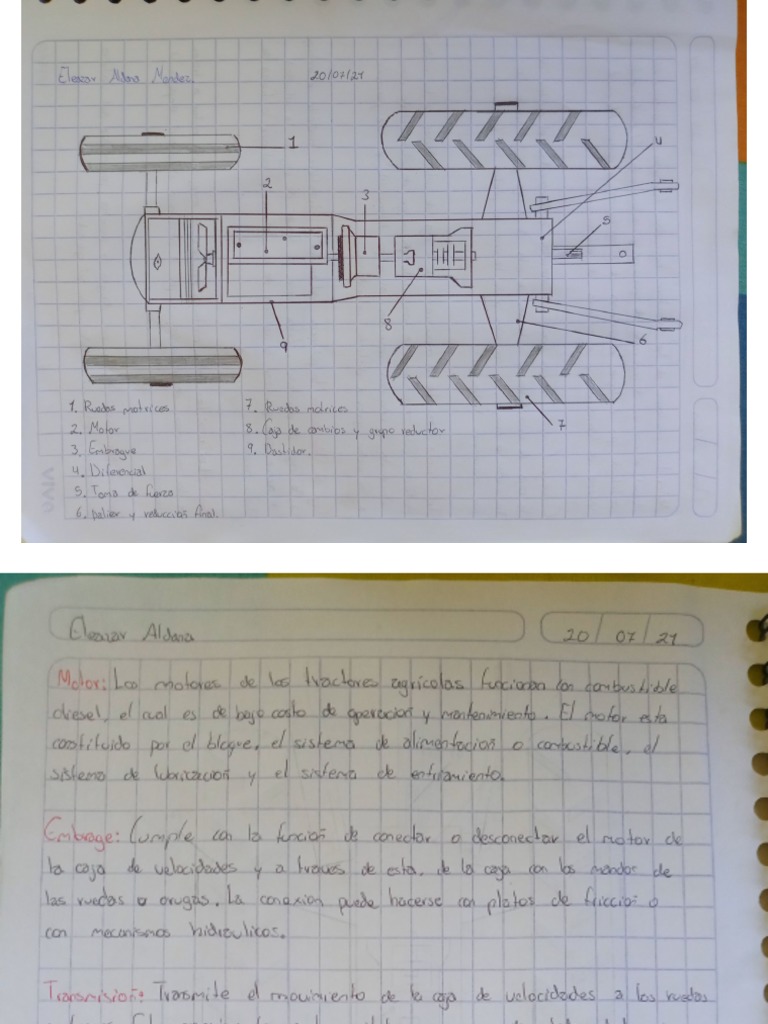 Eleazar Aldana Mendez.
20/07/21
1
2
3
4
5
6
7
8
9
1. Ruedas motrices
2. Motor
3. Embrague
4. Diferencial
5. Toma de fuerza
6. palier y reduccion final.
7. Ruedas motrices
8. Caja de cambios y grupo reductor
9. Bastidor.
vivo
Eleazar Aldana
20/07/21
Motor: Los motores de los tractores agricolas funcionan con combustible
diesel, el cual es de bajo costo de operacion y mantenimiento. El motor esta
constituido por el bloque, el sistema de alimentacion o combustible, el
sistema de lubricacion y el sistema de enfriamiento.
Embrage: Cumple con la funcion de conectar o desconectar el motor de
la caja de velocidades y a traves de esta, de la caja con los mandos de
las ruedas o orugas. La conexion puede hacerse con platos de friccion o
con mecanismos hidraulicos.
Transmision: Transmite el movimiento de la caja de velocidades a las ruedas